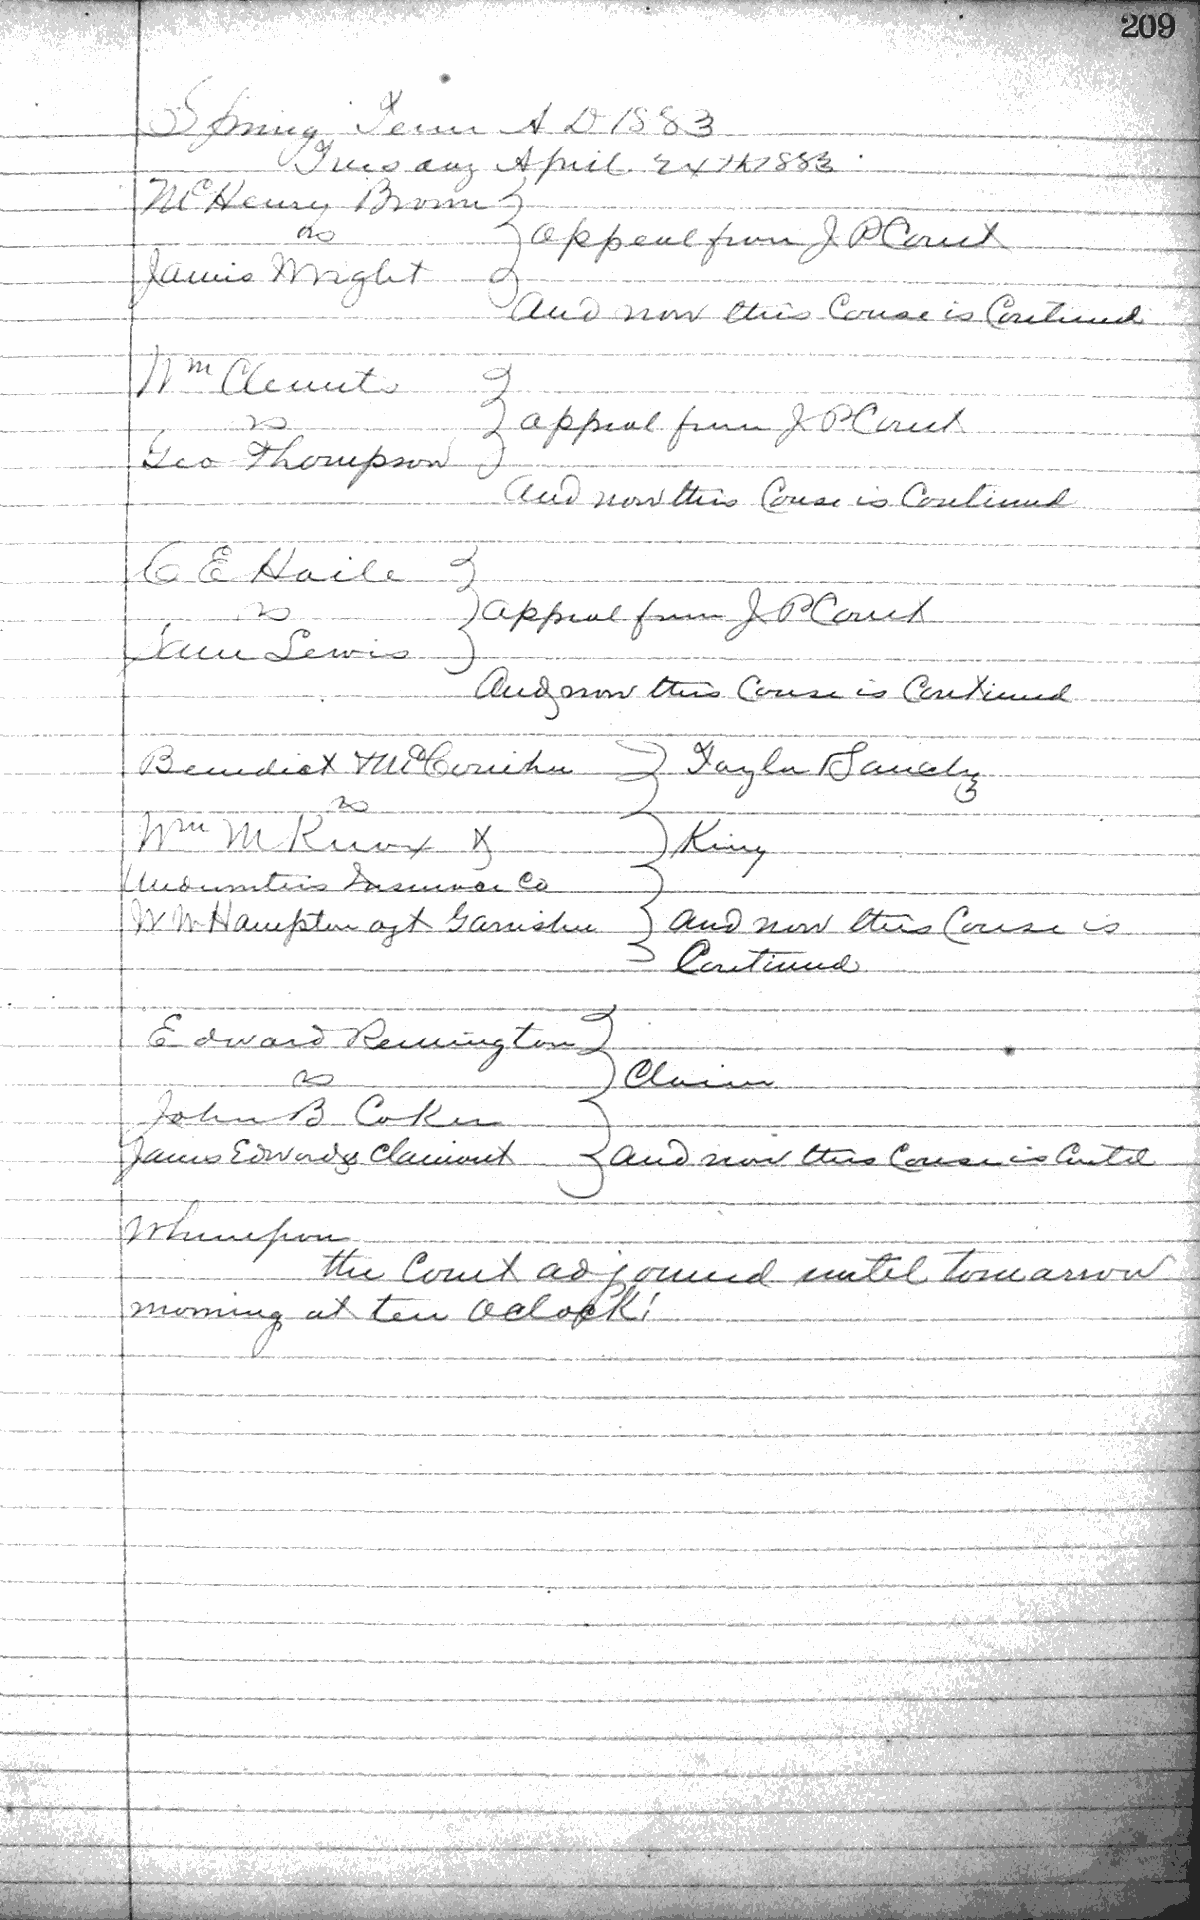 209
Spring Term A D 1883
Tuesday April 24th 1883
McHenry Brown
vs
appeal from J P Court
James Wright
And now this Couse is Continued
Wm Clements
vs
appeal from J P Court
Geo Thompson
And now this Couse is Continued
C E Haile
vs
appeal from J P Court
Sam Lewis
And now this Couse is Continued
Benedict & McConihe
Taylor & Sandy
vs
Wm M Knox &
King
Underwriters Insurance Co
W W Hampton agt Garnishee
and now this Couse is
Continued
Edward Remington
vs
Claim
John B Coker
James Edwards Claimant
and now this Couse is Contd
Whereupon
the Court adjourned until tomarrow
morning at ten Oclock!